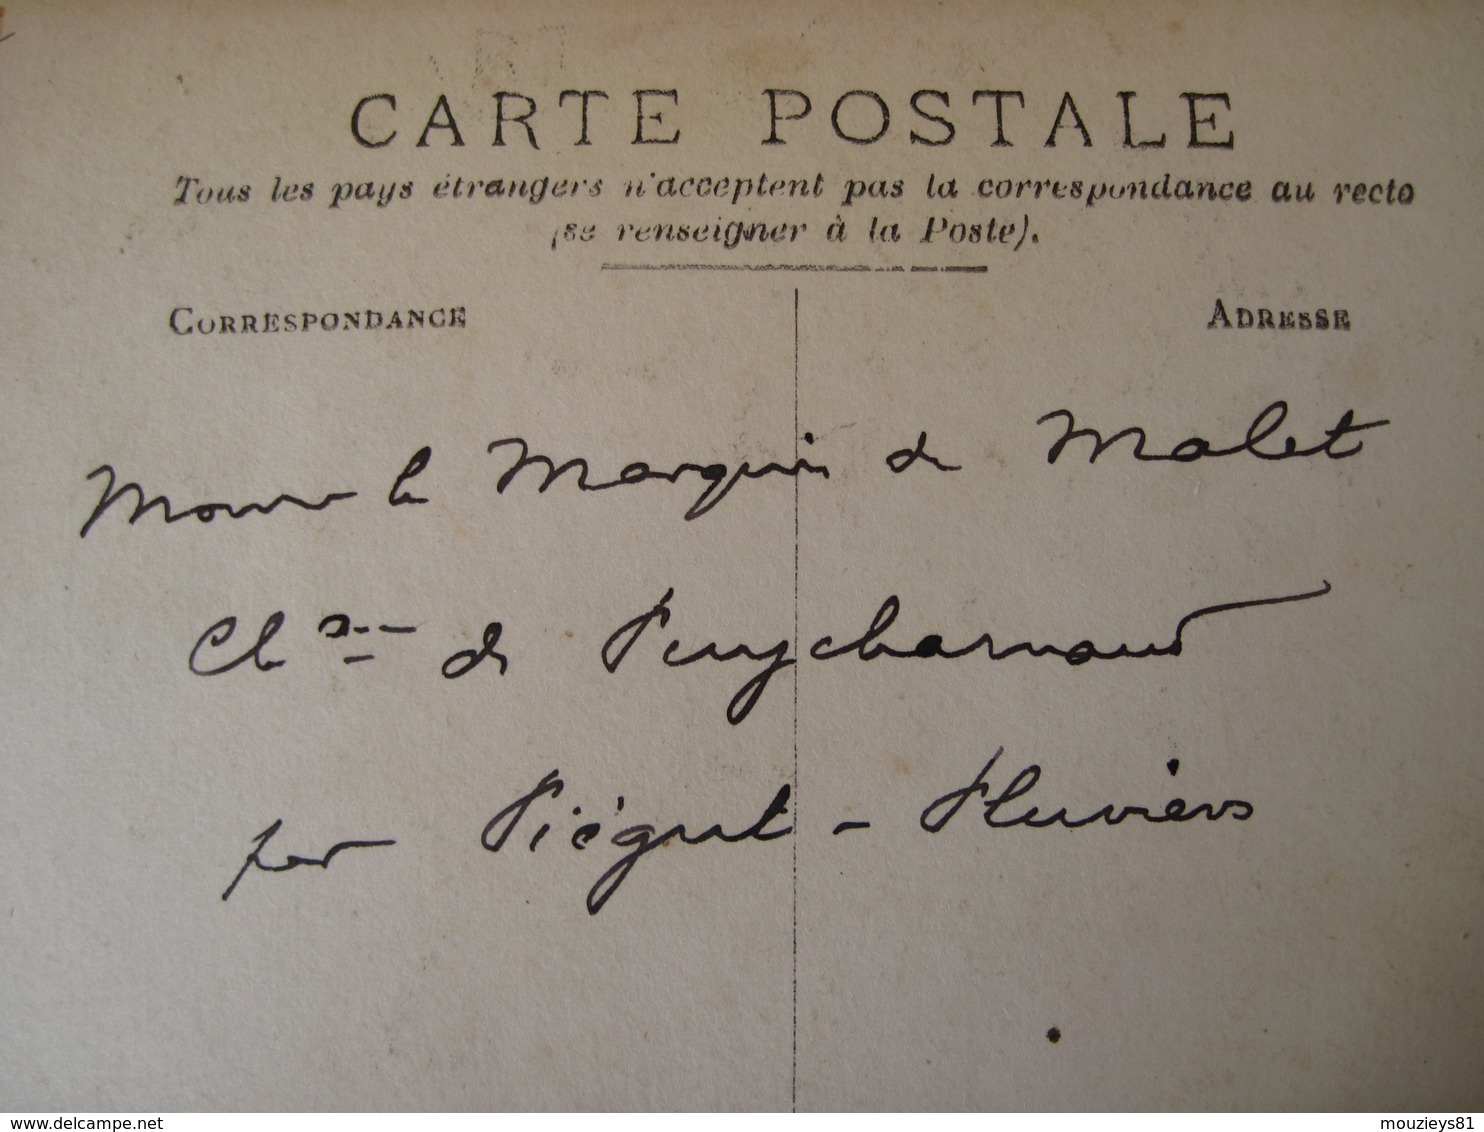 CARTE POSTALE
Tous les pays étrangers n'acceptent pas la correspondance au recto
(se renseigner à la Poste).
CORRESPONDANCE
ADRESSE
le Marquis de Malet
de Puycharnaud
par Piégut - Pluviers
delcampe.net
mouzieys81